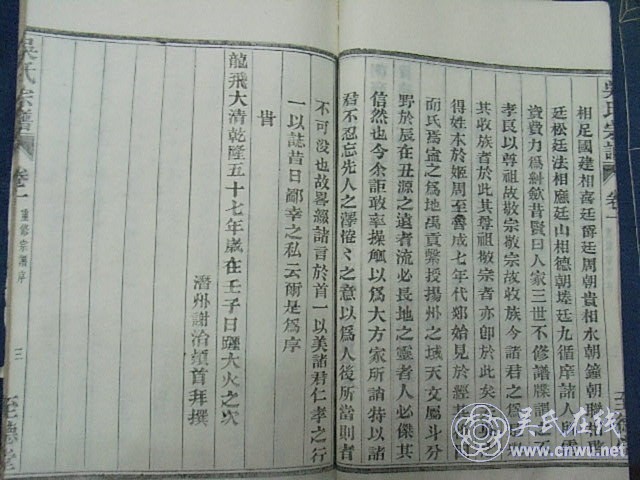 吳氏宗譜
卷一
相足國建相善廷爵廷周朝貴相水朝鐘朝
廷松廷法相應廷山相德朝埁廷九循庠諸人
資費力爲斜歛昔賢曰人家三世不修譜牒謂
孝艮以尊祖故敬宗敬宗故收族今諸君之
其收族者於此其尊祖敬宗者亦卽於此矣
得姓木於姬周至魯成七年伐郯始見於經
而氏焉葢之爲地禹貢繫授揚州之域天文屬斗分
野於辰在丑源之遠者流必長地之靈者人必傑其
信然也今余詎敢率操觚以爲大方家所誚特以諸
君不忍忘先人之澤惓々之意以爲人後所當則者
不可没也故畧綴諸言於首一以美諸君仁孝之行
一以誌昔日鄙幸之私云爾是爲序
旹
龍飛大清乾隆五十七年歲在壬子日躔大火之次
潛州謝治頓首拜撰
吳氏宗譜
卷一
重修宗譜序
三
至德堂
吴氏在线
www.cnwu.net